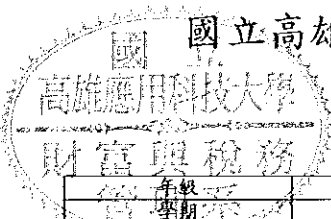 國立高雄
國立
高雄應用科技大學
財富與稅務
管理系
年級
學期